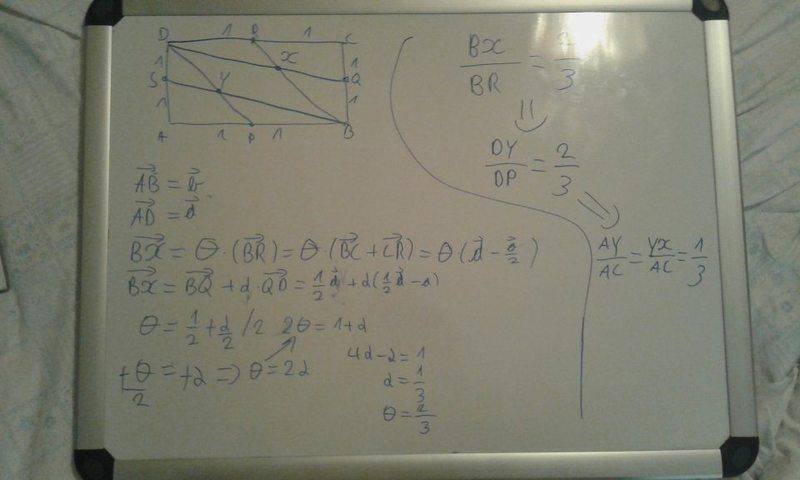 D 1 R 1 C
1 X 1
S Y Q
1 1
A 1 P 1 B
AB⃗ = b⃗
AD⃗ = d⃗
BX⃗ = θ · (BR⃗) = θ · (BC⃗ + CR⃗) = θ (d⃗ - b⃗/2)
BX⃗ = BQ⃗ + d · QD⃗ = 1/2 d⃗ + d(1/2 d⃗ - b)
θ = 1/2 + d/2 /2 2θ = 1 + d
+θ/2 = +d => θ = 2d
4d - d = 1
d = 1/3
θ = 2/3
BX/BR = 2/3
DY/DP = 2/3
AY/AC = YX/AC = 1/3